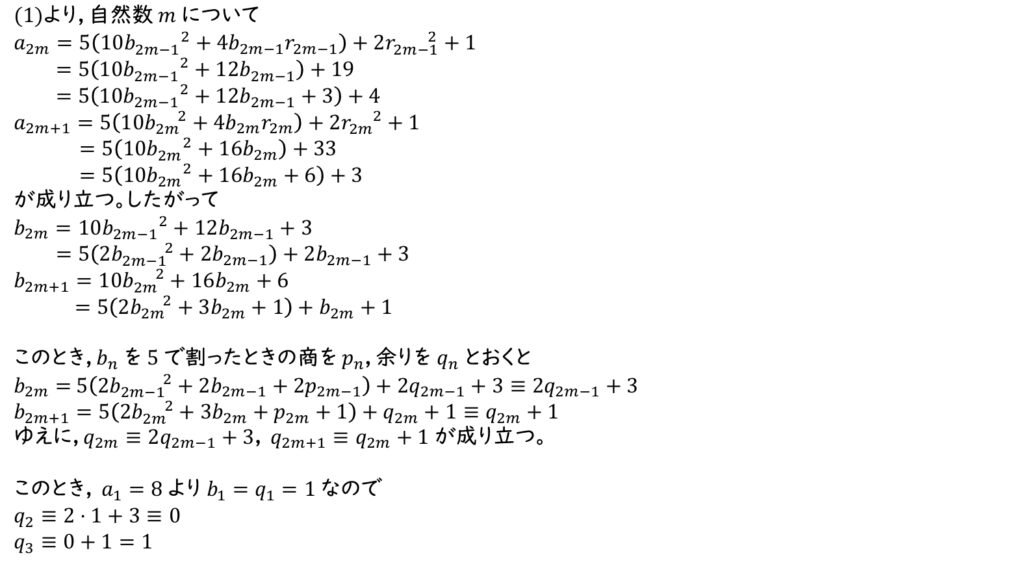 (1)より, 自然数 m について
a₂ₘ = 5(10b₂ₘ₋₁² + 4b₂ₘ₋₁r₂ₘ₋₁) + 2r₂ₘ₋₁² + 1
= 5(10b₂ₘ₋₁² + 12b₂ₘ₋₁) + 19
= 5(10b₂ₘ₋₁² + 12b₂ₘ₋₁ + 3) + 4
a₂ₘ₊₁ = 5(10b₂ₘ² + 4b₂ₘr₂ₘ) + 2r₂ₘ² + 1
= 5(10b₂ₘ² + 16b₂ₘ) + 33
= 5(10b₂ₘ² + 16b₂ₘ + 6) + 3
が成り立つ。したがって
b₂ₘ = 10b₂ₘ₋₁² + 12b₂ₘ₋₁ + 3
= 5(2b₂ₘ₋₁² + 2b₂ₘ₋₁) + 2b₂ₘ₋₁ + 3
b₂ₘ₊₁ = 10b₂ₘ² + 16b₂ₘ + 6
= 5(2b₂ₘ² + 3b₂ₘ + 1) + b₂ₘ + 1
このとき, bₙ を 5 で割ったときの商を pₙ, 余りを qₙ とおくと
b₂ₘ = 5(2b₂ₘ₋₁² + 2b₂ₘ₋₁ + 2p₂ₘ₋₁) + 2q₂ₘ₋₁ + 3 ≡ 2q₂ₘ₋₁ + 3
b₂ₘ₊₁ = 5(2b₂ₘ² + 3b₂ₘ + p₂ₘ + 1) + q₂ₘ + 1 ≡ q₂ₘ + 1
ゆえに, q₂ₘ ≡ 2q₂ₘ₋₁ + 3, q₂ₘ₊₁ ≡ q₂ₘ + 1 が成り立つ。
このとき, a₁ = 8 より b₁ = q₁ = 1 なので
q₂ ≡ 2 · 1 + 3 ≡ 0
q₃ ≡ 0 + 1 = 1